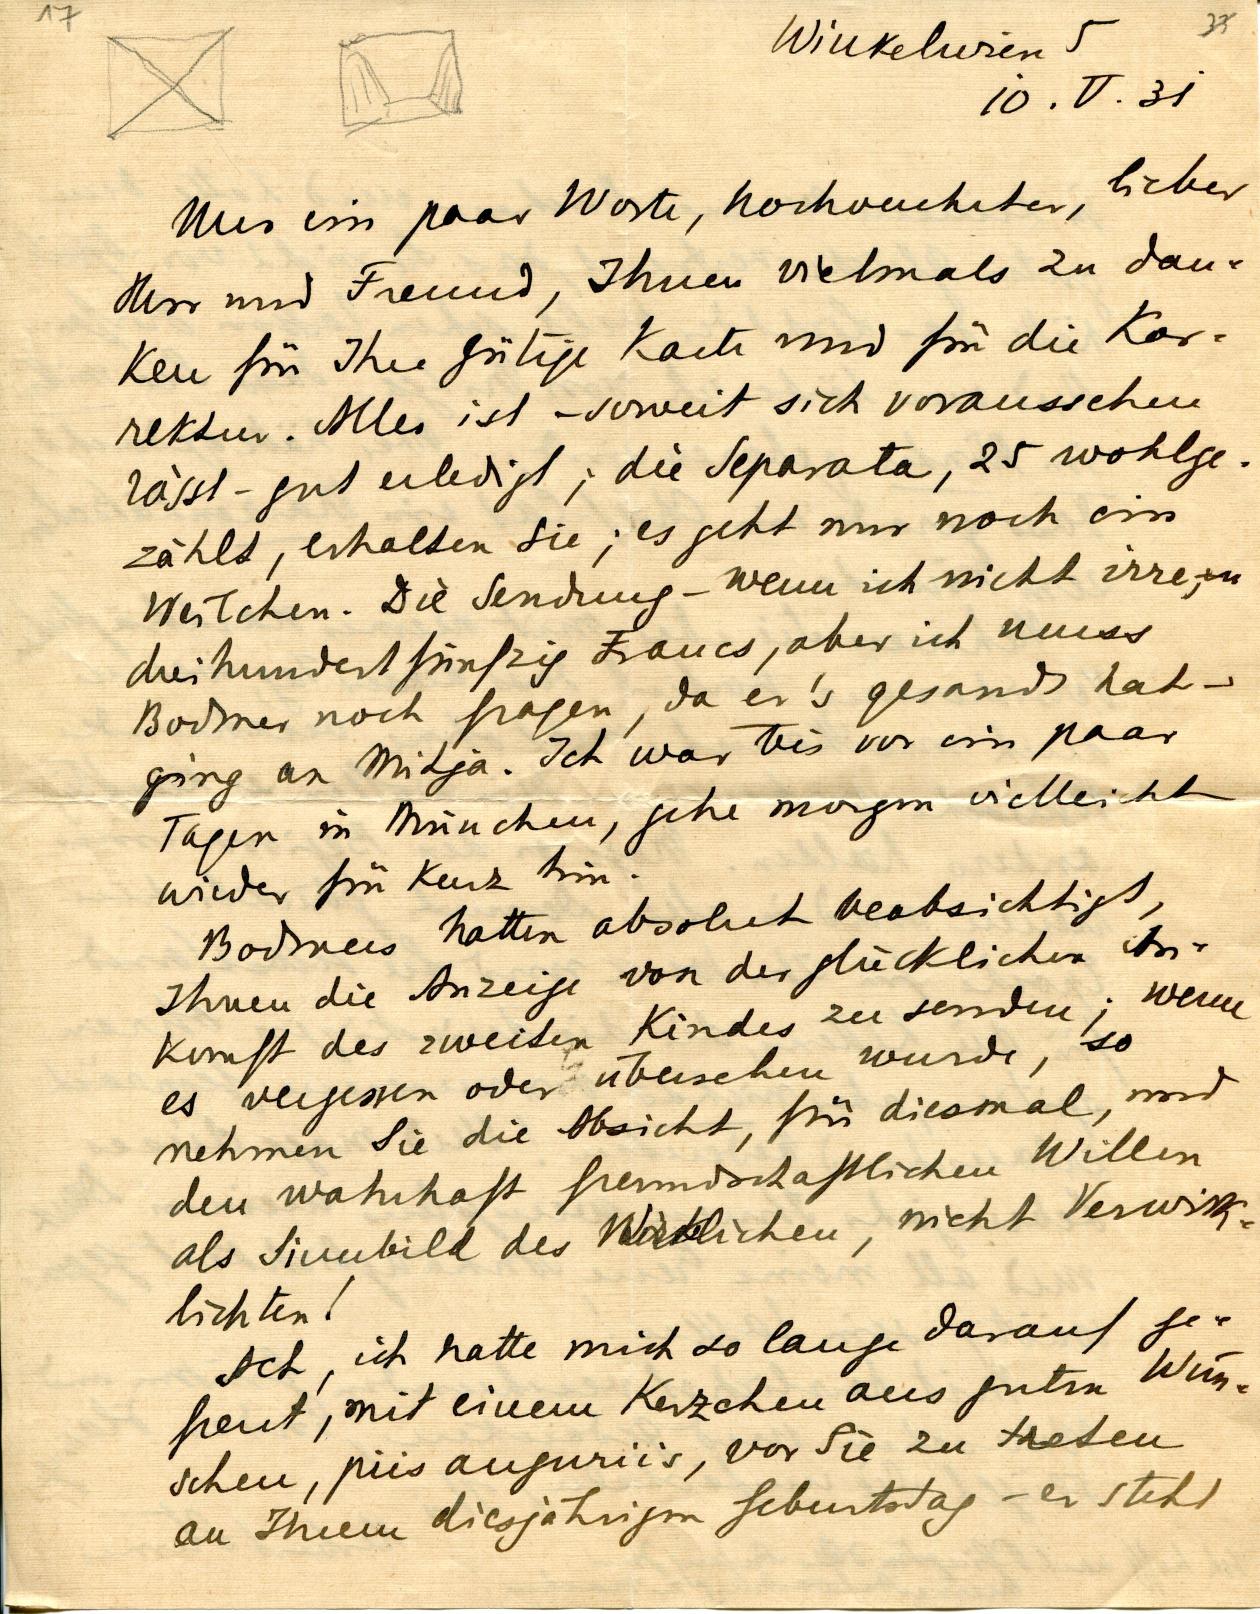 17
Winkelwiesn 5
10. V. 31
Nur ein paar Worte, hochverehrter, lieber
Herr und Freund, Ihnen vielmals zu dan-
ken für Ihre gütige Karte und für die Kor-
rektur. Alles ist - soweit sich voraussehen
lässt - gut erledigt; die Separata, 25 wohlge-
zählt, erhalten Sie; es geht nur noch ein
Weilchen. Die Sendung - wenn ich nicht irre,
dreihundertfünfzig Francs, aber ich muss
Bodmer noch fragen, da er's gesandt hat -
ging an Mitja. Ich war bis vor ein paar
Tagen in München, gehe morgen vielleicht
wieder für kurz hin.
Bodmers hatten absolut beabsichtigt,
Ihnen die Anzeige von der glücklichen An-
kunft des zweiten Kindes zu senden; wenn
es vergessen oder übersehen wurde, so
nehmen Sie die Absicht, für diesmal, und
den wahrhaft freundschaftlichen Willen
als Sinnbild des Wirklichen, nicht Verwirk-
lichten!
Ach, ich hatte mich so lange darauf ge-
freut, mit einem Kerzchen aus guten Wün-
schen, piis auguriis, vor Sie zu treten
an Ihrem diesjährigen Geburtstag - er steht